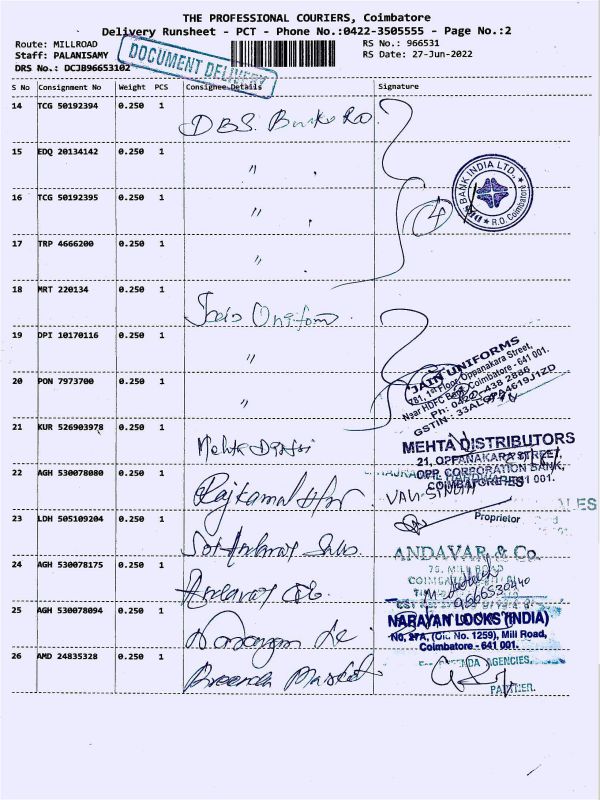 THE PROFESSIONAL COURIERS, Coimbatore
Delivery Runsheet - PCT - Phone No.:0422-3505555 - Page No.:2
Route: MILLROAD RS No.: 966531
Staff: PALANISAMY RS Date: 27-Jun-2022
DRS No.: DCJB96653102
DOCUMENT DELIVERY
S No Consignment No Weight PCS Consignee Details Signature
14 TCG 50192394 0.250 1 DBS Bank RO.
15 EDQ 20134142 0.250 1 〃
BANK INDIA LTD.,
R.O. Coimbatore
16 TCG 50192395 0.250 1 〃
4
17 TRP 4666200 0.250 1 〃
18 MRT 220134 0.250 1 Jain Uniform
19 DPI 10170116 0.250 1 〃
JAIN UNIFORMS
781, 1st Floor, Oppanakara Street,
Near HDFC Bank, Coimbatore - 641 001.
Ph: 0422- 438 2886
GSTIN : 33
20 PON 7973700 0.250 1 〃
21 KUR 526903978 0.250 1 Mehta
MEHTA DISTRIBUTORS
21, OPPANAKARA STREET,
OPP. CORPORATION BANK,
COIMBATORE 641 001.
22 AGH 530078080 0.250 1 Rajkamal
Proprietor
23 LDH 505109204 0.250 1 Sales
ANDAVAR & Co.
MILL ROAD
24 AGH 530078175 0.250 1 Andavar
25 AGH 530078094 0.250 1 Narayan
NARAYAN LOCKS (INDIA)
No. 27A, (Old. No. 1259), Mill Road,
Coimbatore - 641 001.
26 AMD 24835328 0.250 1
AGENCIES.
PARTNER.